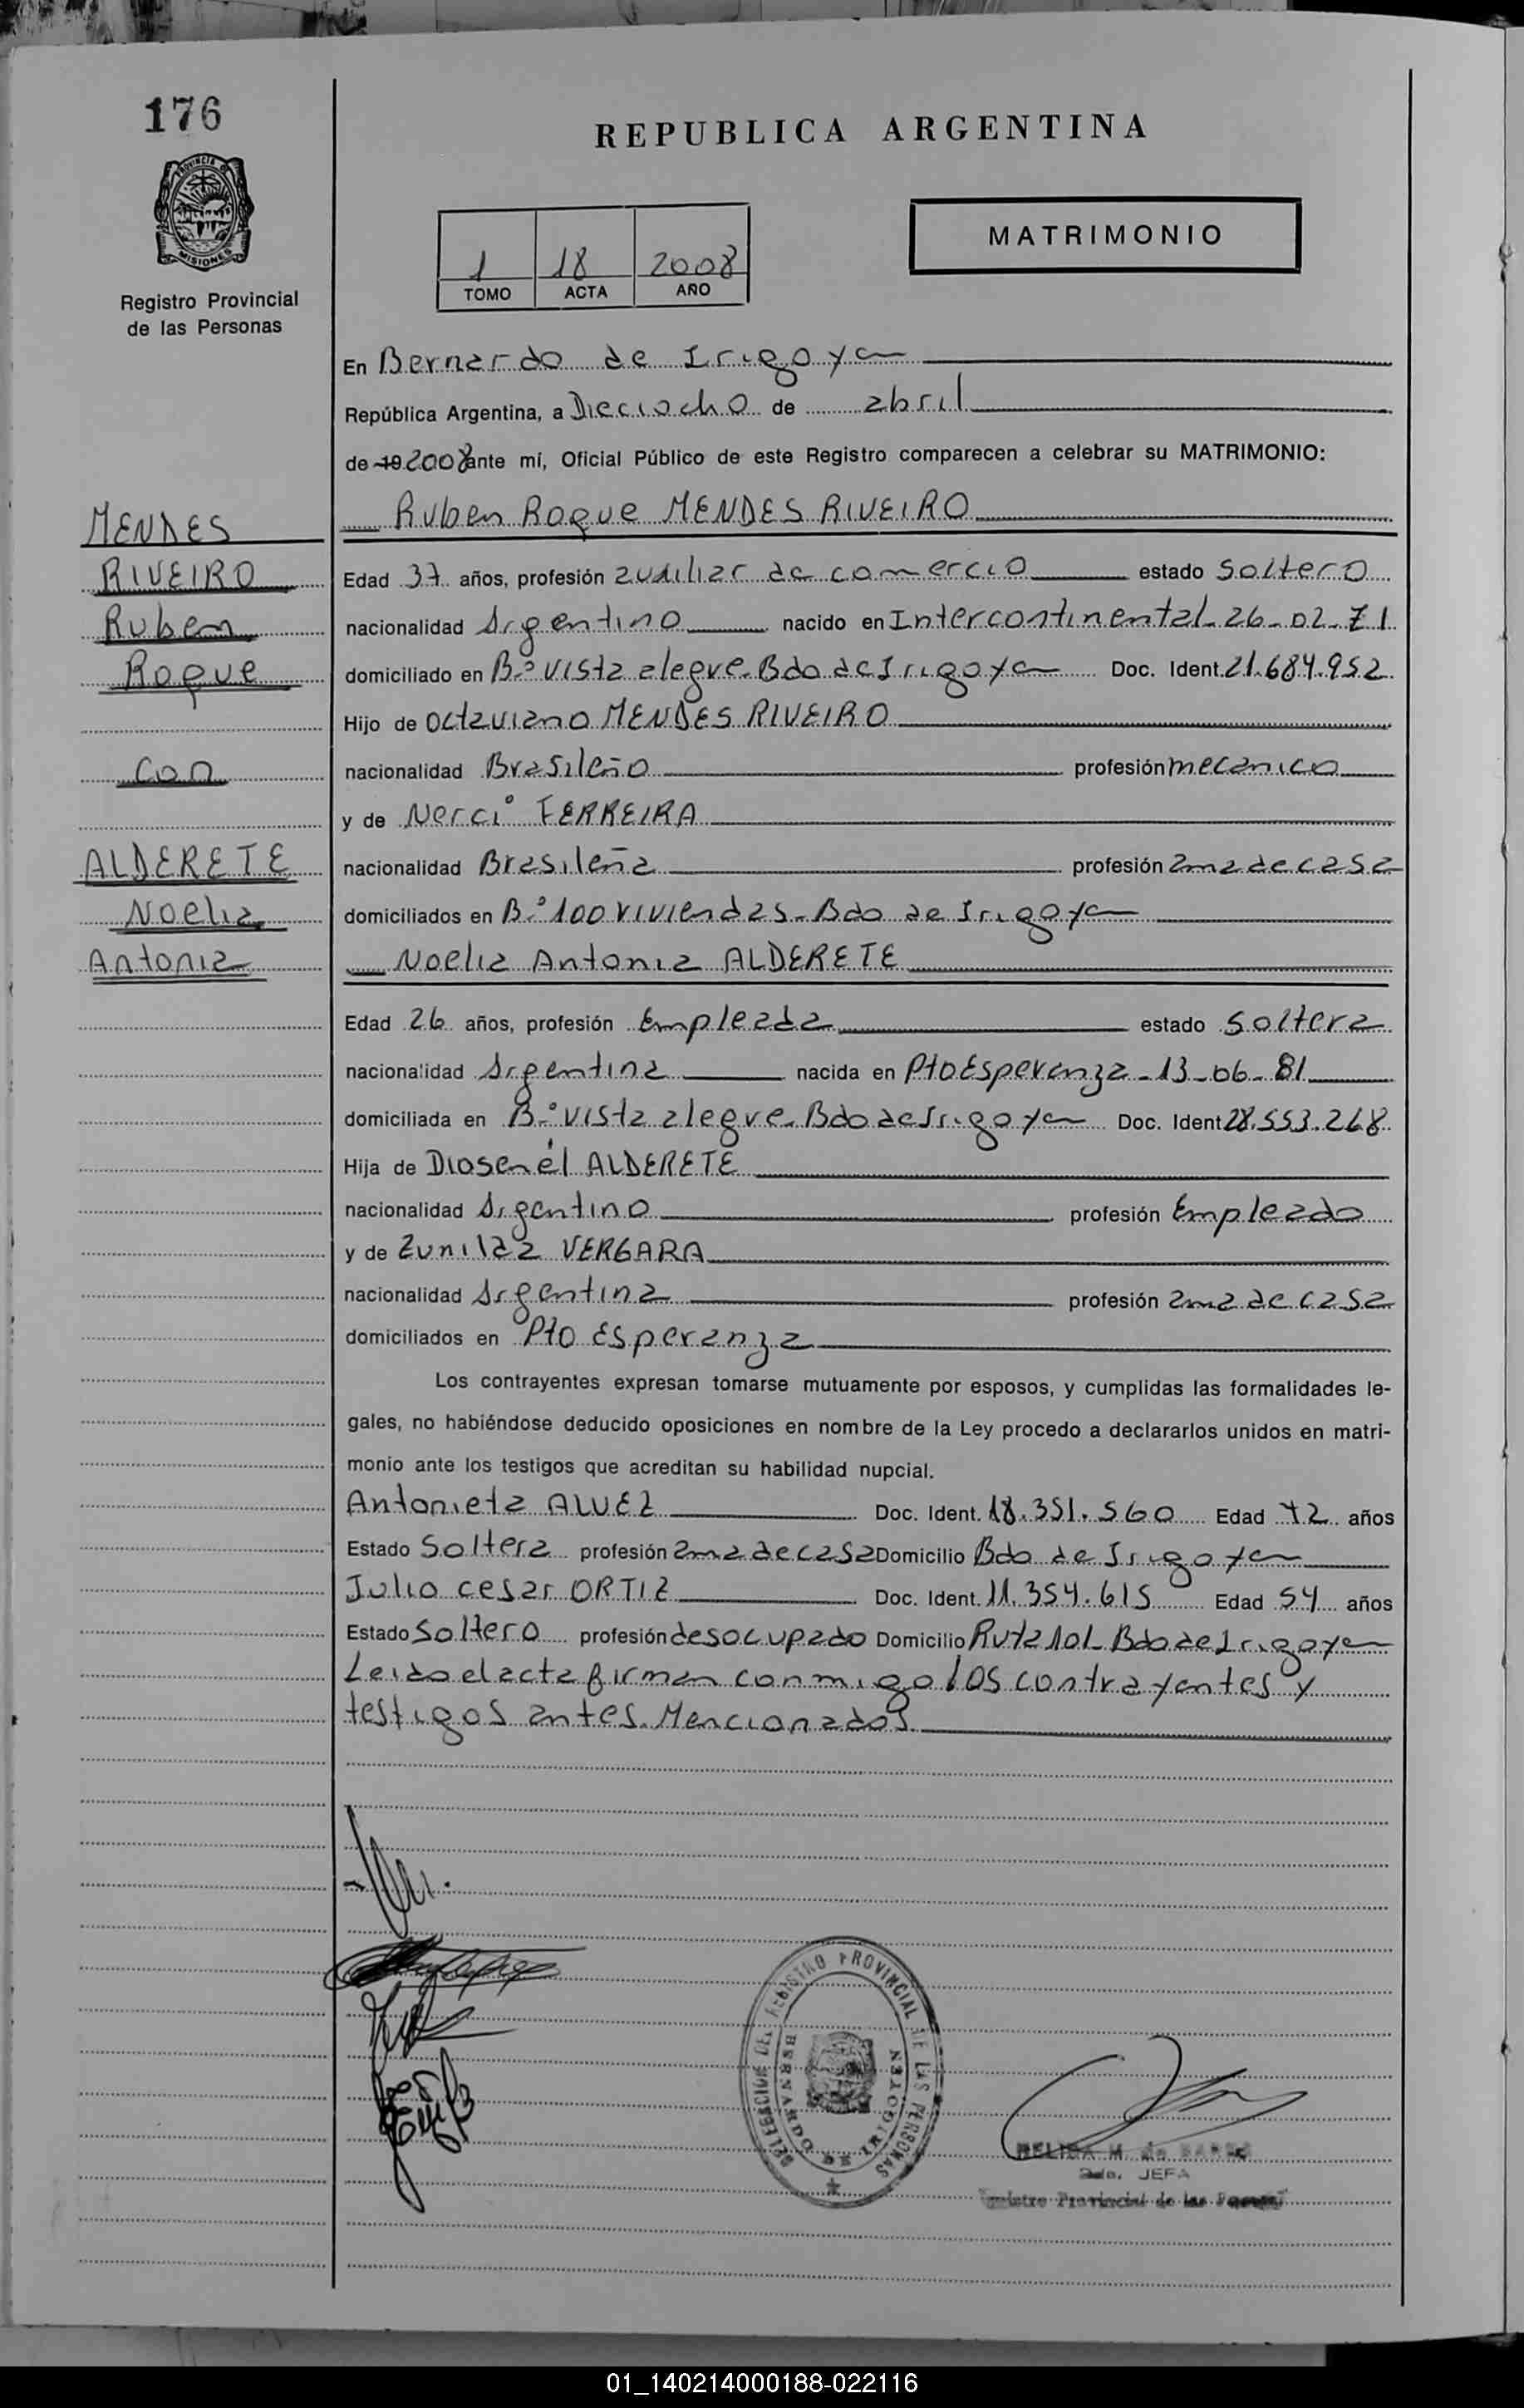 176
REPUBLICA ARGENTINA
PROVINCIA DE
MISIONES
MATRIMONIO
1 18 2008
TOMO ACTA AÑO
Registro Provincial
de las Personas
En Bernardo de Irigoyen
República Argentina, a Dieciocho de abril
de 19 2008 ante mí, Oficial Público de este Registro comparecen a celebrar su MATRIMONIO:
MENDES
RIVEIRO
Ruben
Roque
con
ALDERETE
Noelia
Antonia
Ruben Roque MENDES RIVEIRO
Edad 37 años, profesión auxiliar de comercio estado soltero
nacionalidad Argentino nacido en Intercontinental - 26-02-71
domiciliado en B.º vista alegre - Bdo de Irigoyen Doc. Ident. 21.684.952
Hijo de Octaviano MENDES RIVEIRO
nacionalidad Brasileño profesión mecanico
y de Nerci FERREIRA
nacionalidad Brasileña profesión ama de casa
domiciliados en B.º 100 viviendas - Bdo de Irigoyen
Noelia Antonia ALDERETE
Edad 26 años, profesión Empleada estado soltera
nacionalidad Argentina nacida en Pto Esperanza - 13-06-81
domiciliada en B.º vista alegre - Bdo de Irigoyen Doc. Ident 28.553.268
Hija de Diosenél ALDERETE
nacionalidad Argentino profesión Empleado
y de Zunilda VERGARA
nacionalidad Argentina profesión ama de casa
domiciliados en Pto Esperanza
Los contrayentes expresan tomarse mutuamente por esposos, y cumplidas las formalidades le-
gales, no habiéndose deducido oposiciones en nombre de la Ley procedo a declararlos unidos en matri-
monio ante los testigos que acreditan su habilidad nupcial.
Antonieta ALVEZ Doc. Ident. 18.351.560 Edad 42 años
Estado Soltera profesión ama de casa Domicilio Bdo de Irigoyen
Julio cesar ORTIZ Doc. Ident. 11.354.615 Edad 54 años
Estado Soltero profesión desocupado Domicilio Ruta 101 - Bdo de Irigoyen
Leido el acta firman conmigo los contrayentes y
testigos antes Mencionados
DELEGACION DEL REGISTRO PROVINCIAL DE LAS PERSONAS
BERNARDO DE IRIGOYEN
M. de
2da. JEFA
Registro Provincial de las Personas
01_140214000188-022116